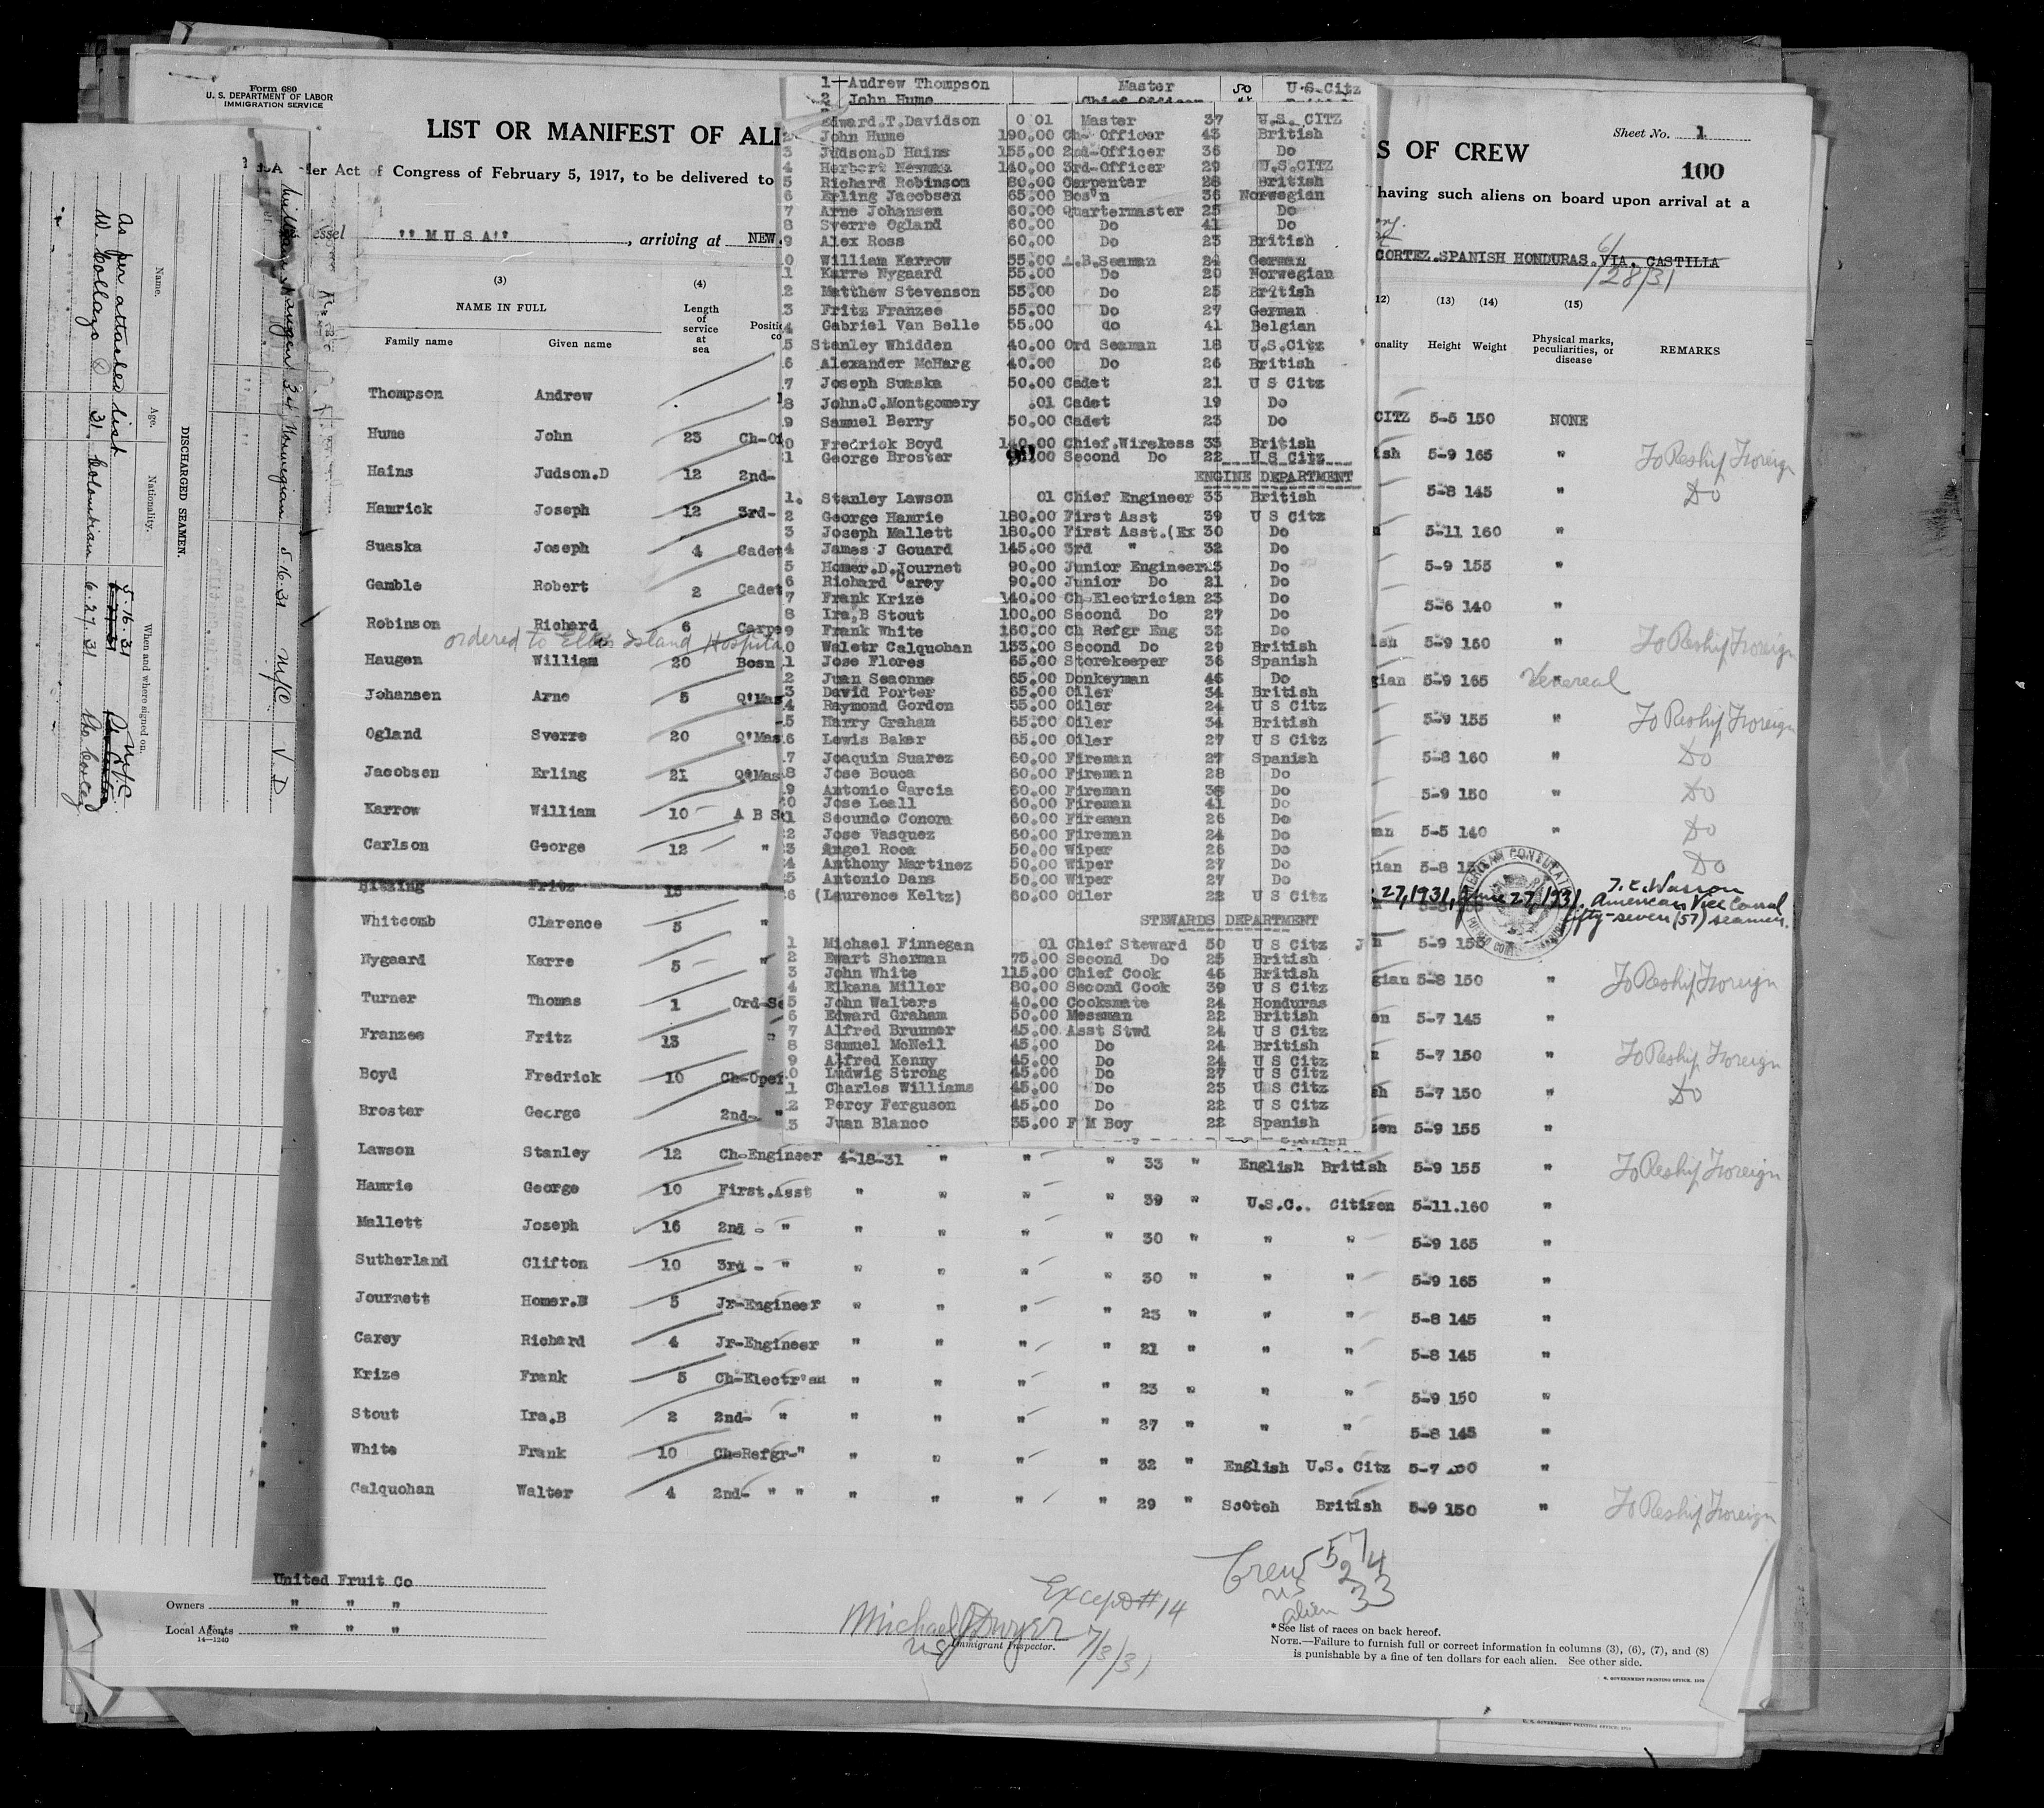 Form 680
U. S. DEPARTMENT OF LABOR
IMMIGRATION SERVICE
LIST OR MANIFEST OF ALI
S OF CREW
Sheet No. 1
100
Act of Congress of February 5, 1917, to be delivered to
having such aliens on board upon arrival at a
essel "MUSA", arriving at NEW
CORTEZ.SPANISH HONDURAS.VIA. CASTILLA
6/28/31
(3) (4)
NAME IN FULL
Length of service at sea
Family name Given name
12) (13) (14) (15)
onality Height Weight Physical marks, peculiarities, or disease REMARKS
Thompson Andrew
Hume John 23 Ch-Of
Hains Judson.D 12 2nd-
Hamrick Joseph 12 3rd-
Suaska Joseph 4 Cadet
Gamble Robert 2 Cadet
Robinson Richard 6 Carpe
ordered to Ellis Island Hospita
Haugen William 20 Bosn
Johansen Arne 5 Q'Mas
Ogland Sverre 20 Q'Mas
Jacobsen Erling 21 Q'Mas
Karrow William 10 A B S
Carlson George 12 "
Hitzing Fritz 15 "
Whitcomb Clarence 5 "
Nygaard Karre 5 "
Turner Thomas 1 Ord-Se
Franzee Fritz 13 "
Boyd Fredrick 10 Ch-Oper
Broster George 2nd- "
Lawson Stanley 12 Ch-Engineer 4-18-31 " " " 33 " English British 5-9 155 " To Reship Foreign
Hamrie George 10 First.Asst " " " " 39 " U.S.C.. Citizen 5-11.160 "
Mallett Joseph 16 2nd - " " " " " 30 " " " 5-9 165 "
Sutherland Clifton 10 3rd - " " " " " 30 " " " 5-9 165 "
Journett Homer.D 5 Jr-Engineer " " " " 23 " " " 5-8 145 "
Carey Richard 4 Jr-Engineer " " " " 21 " " " 5-8 145 "
Krize Frank 5 Ch-Electr'an " " " " 23 " " " 5-9 150 "
Stout Ira.B 2 2nd- " " " " " 27 " " " 5-8 145 "
White Frank 10 Ch-Refgr-" " " " " 32 " English U.S. Citz 5-7 "
Calquohan Walter 4 2nd- " " " " " " 29 " Scotch British 5-9 150 " To Reship Foreign
1 Andrew Thompson Master 50 U.S.Citz
2 John Hume Chief Officer
Edward.T.Davidson 0 01 Master 37 U.S. CITZ
John Hume 190.00 Ch- Officer 43 British
3 Judson.D Hains 155.00 2nd-Officer 36 Do
4 Herbert Newman 140.00 3rd-Officer 29 U.S.CITZ
5 Richard Robinson 80.00 Carpenter 28 British
6 Erling Jacobsen 65.00 Bos'n 36 Norwegian
7 Arne Johansen 60.00 Quartermaster 25 Do
8 Sverre Ogland 60.00 Do 41 Do
9 Alex Ross 60.00 Do 23 British
0 William Karrow 55.00 A.B.Seaman 24 German
1 Karre Nygaard 55.00 Do 20 Norwegian
2 Matthew Stevenson 55.00 Do 25 British
3 Fritz Franzee 55.00 Do 27 German
4 Gabriel Van Belle 55.00 do 41 Belgian
5 Stanley Whidden 40.00 Ord Seaman 18 U.S.Citz
6 Alexander McHarg 40.00 Do 26 British
7 Joseph Suaska 50.00 Cadet 21 U S Citz
8 John.C.Montgomery .01 Cadet 19 Do
9 Samuel Berry 50.00 Cadet 23 Do
0 Fredrick Boyd 140.00 Chief.Wireless 33 British
1 George Broster 00 Second Do 22 U S Citz
ENGINE DEPARTMENT
1. Stanley Lawson 01 Chief Engineer 33 British
2 George Hamrie 180.00 First Asst 39 U S Citz
3 Joseph Mallett 180.00 First Asst.(Ex 30 Do
4 James J Gouard 145.00 3rd " 32 Do
5 Homer.D.Journet 90.00 Junior Engineer 23 Do
6 Richard Carey 90.00 Junior Do 21 Do
7 Frank Krize 140.00 Ch-Electrician 23 Do
8 Ira,B Stout 100.00 Second Do 27 Do
9 Frank White 160.00 Ch Refgr Eng 32 Do
0 Waletr Calquohan 133.00 Second Do 29 British
1 Jose Flores 65.00 Storekeeper 36 Spanish
2 Juan Seaonne 65.00 Donkeyman 46 Do
3 David Porter 65.00 Oiler 34 British
4 Raymond Gordon 55.00 Oiler 24 U S Citz
5 Harry Graham 65.00 Oiler 34 British
6 Lewis Baker 65.00 Oiler 27 U S Citz
7 Joaquin Suarez 60.00 Fireman 27 Spanish
8 Jose Bouca 60.00 Fireman 28 Do
9 Antonio Garcia 60.00 Fireman 38 Do
20 Jose Leall 60.00 Fireman 41 Do
21 Secundo Conora 60.00 Fireman 26 Do
22 Jose Vasquez 60.00 Fireman 24 Do
23 Angel Roca 50.00 Wiper 26 Do
4 Anthony Martinez 50.00 Wiper 27 Do
5 Antonio Dans 50.00 Wiper 27 Do
6 (Laurence Keltz) 60.00 Oiler 22 U S Citz
STEWARDS DEPARTMENT
1 Michael Finnegan 01 Chief Steward 50 U S Citz
2 Ewart Sherman 75.00 Second Do 25 British
3 John White 115.00 Chief Cook 46 British
4 Elkana Miller 80.00 Second Cook 39 U S Citz
5 John Walters 40.00 Cooksmate 24 Honduras
6 Edward Graham 50.00 Messman 22 British
7 Alfred Brunner 45.00 Asst Stwd 24 U S Citz
8 Samuel McNeil 45.00 Do 24 British
9 Alfred Kenny 45.00 Do 24 U S Citz
0 Ludwig Strong 45.00 Do 27 U S Citz
1 Charles Williams 45.00 Do 23 U S Citz
2 Percy Ferguson 45.00 Do 22 U S Citz
3 Juan Blanco 35.00 F M Boy 22 Spanish
CITZ 5-5 150 NONE
ish 5-9 165 " To Reship Foreign
5-8 145 " Do
n 5-11 160 "
5-9 155 "
5-6 140 "
ish 5-9 160 " To Reship Foreign
gian 5-9 165 " Venereal
5-9 155 " To Reship Foreign
5-8 160 " Do
5-9 150 " Do
an 5-5 140 " Do
gian 5-8 Do
27,1931, June 27, 1931. T.C. Wasson
American Vice Consul
fifty-seven (57) seamen.
n 5-9 155
gian 5-8 150 " To Reship Foreign
en 5-7 145 "
n 5-7 150 " To Reship Foreign
sh 5-7 150 " Do
zen 5-9 155 "
United Fruit Co
Owners " " "
Local Agents " " "
14—1240
Michael J Dwyer
Except #14
US
7/3/31
Immigrant Inspector.
Crew 57
US 24
alien 33
*See list of races on back hereof.
NOTE.—Failure to furnish full or correct information in columns (3), (6), (7), and (8)
is punishable by a fine of ten dollars for each alien. See other side.
DISCHARGED SEAMEN.
Name. Age. Nationality. When and where signed on.
As per attached list
W. Collazo 31 Colombian 6.27.31 Pto Cortez
5.16.31 NYC
William Haugen 34 Norwegian 5.16.31 NYC V. D